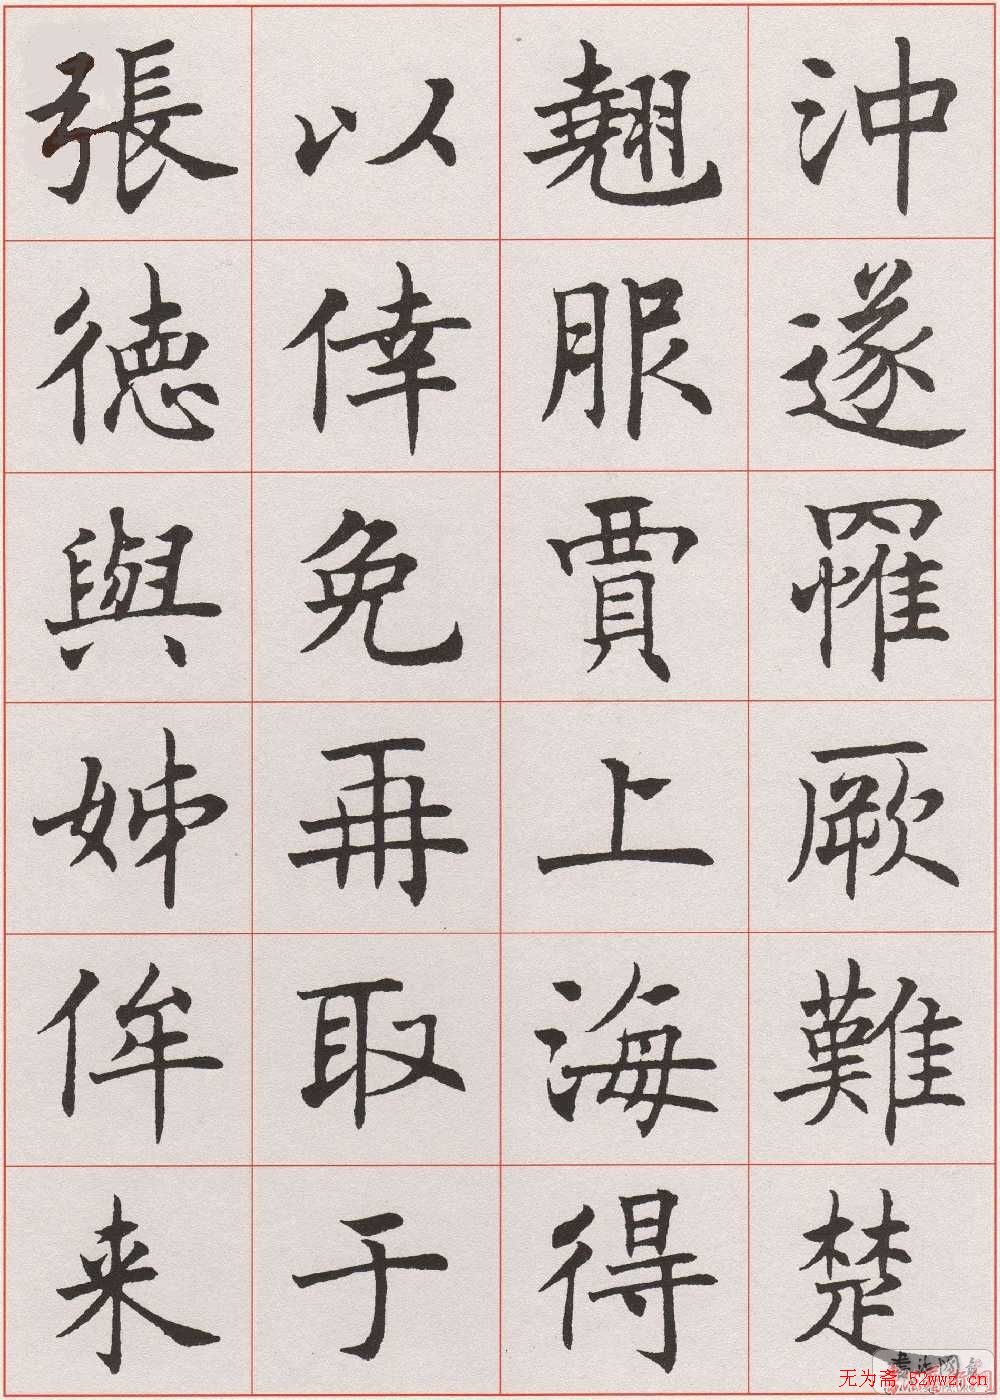 沖遂罹厥難楚
翹服賈上海得
以倖免再取于
張德與姊侔来
无为斋 52wwz.cn